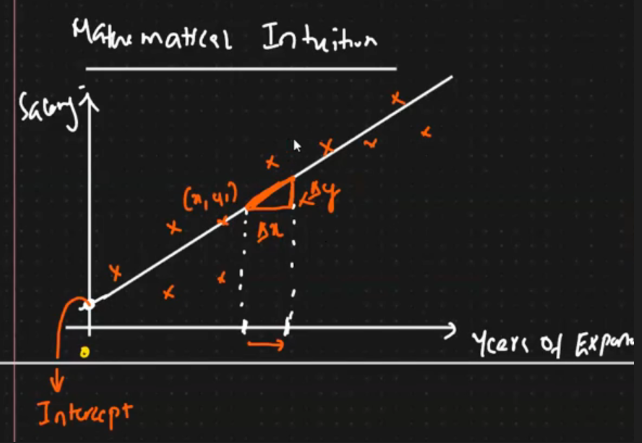 Mathematical Intuition
Salary
(x, y1)
Δy
Δx
0
Years of Exper
Intercept